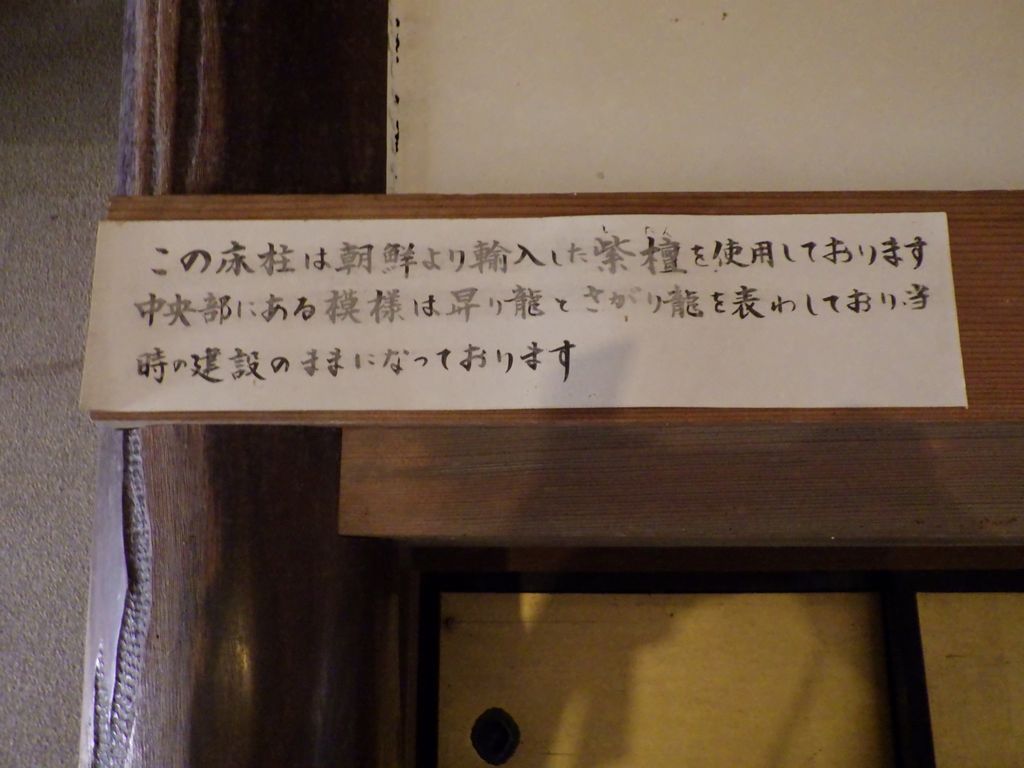 この床柱は朝鮮より輸入した紫檀を使用しております
中央部にある模様は昇り龍とさがり龍を表わしており当
時の建設のままになっております